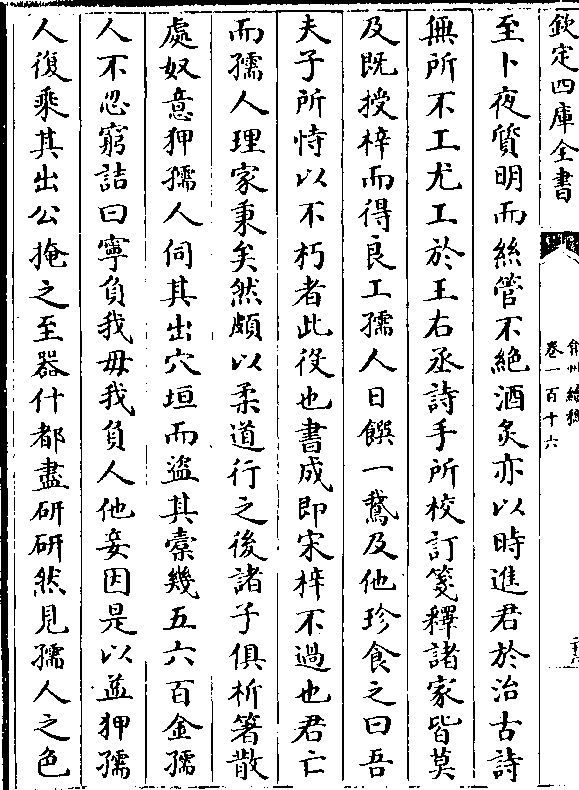 欽定四庫全書
弇州續稿
卷一百十六
至卜夜質明而絲管不絕酒炙亦以時進君於治古詩
無所不工尤工於王右丞詩手所校訂箋釋諸家皆莫
及既授梓而得良工孺人日饌一鵞及他珍食之曰吾
夫子所恃以不朽者此役也書成即宋梓不過也君亡
而孺人理家秉矣然頗以柔道行之後諸子俱析箸散
處奴意狎孺人伺其出穴垣而盜其槖幾五六百金孺
人不忍窮詰曰寧負我毋我負人他妾因是以益狎孺
人復乘其出公掩之至器什都盡硏硏然見孺人之色